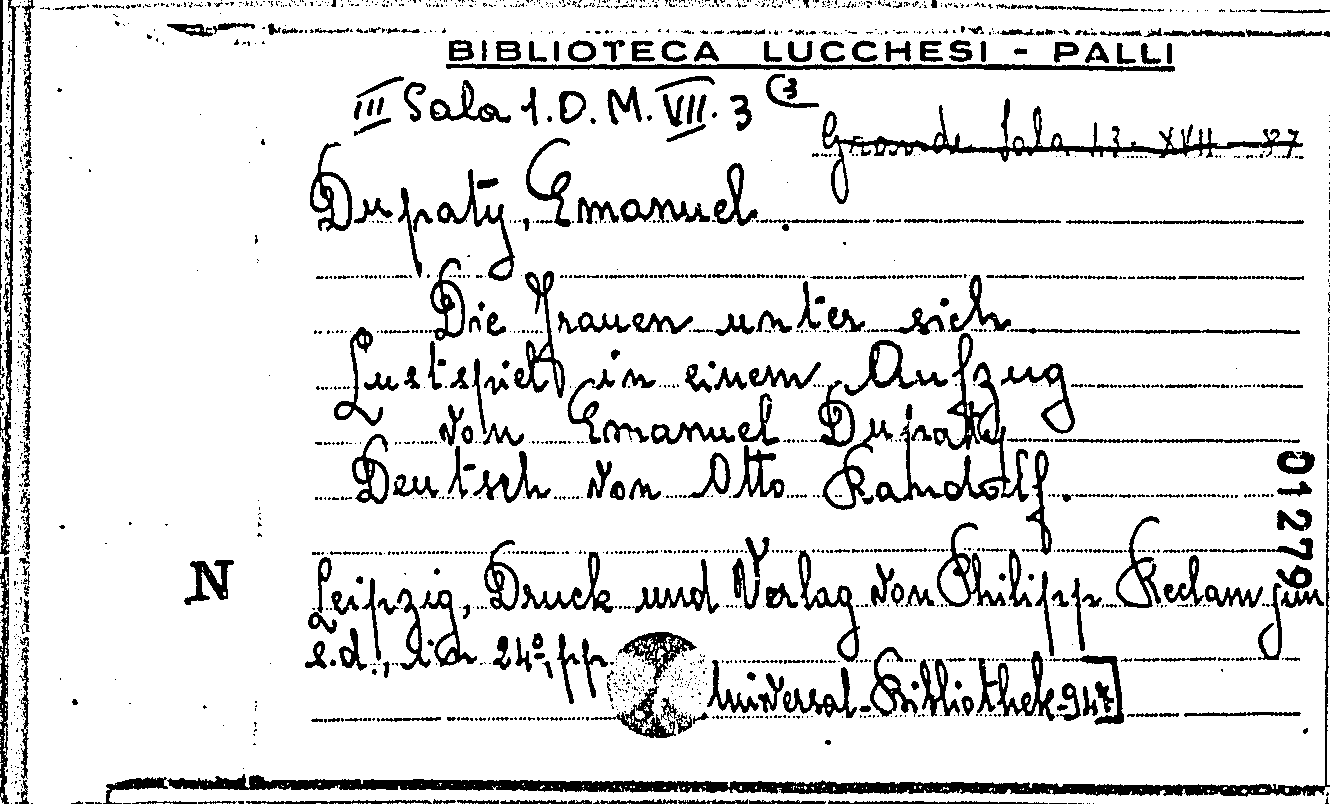 BIBLIOTECA LUCCHESI - PALLI
III Sala 1.D.M.VII.3 (3
Grande Sala 13. XVII 87
Dupaty, Emanuel.
Die Frauen unter sich
Lustspiel in einem Aufzug
von Emanuel Dupaty
Deutsch von Otto Randolf.
01279
N
Leipzig, Druck und Verlag von Philipp Reclam jun
s.d., in 24º, pp
Universal-Bibliothek-947]